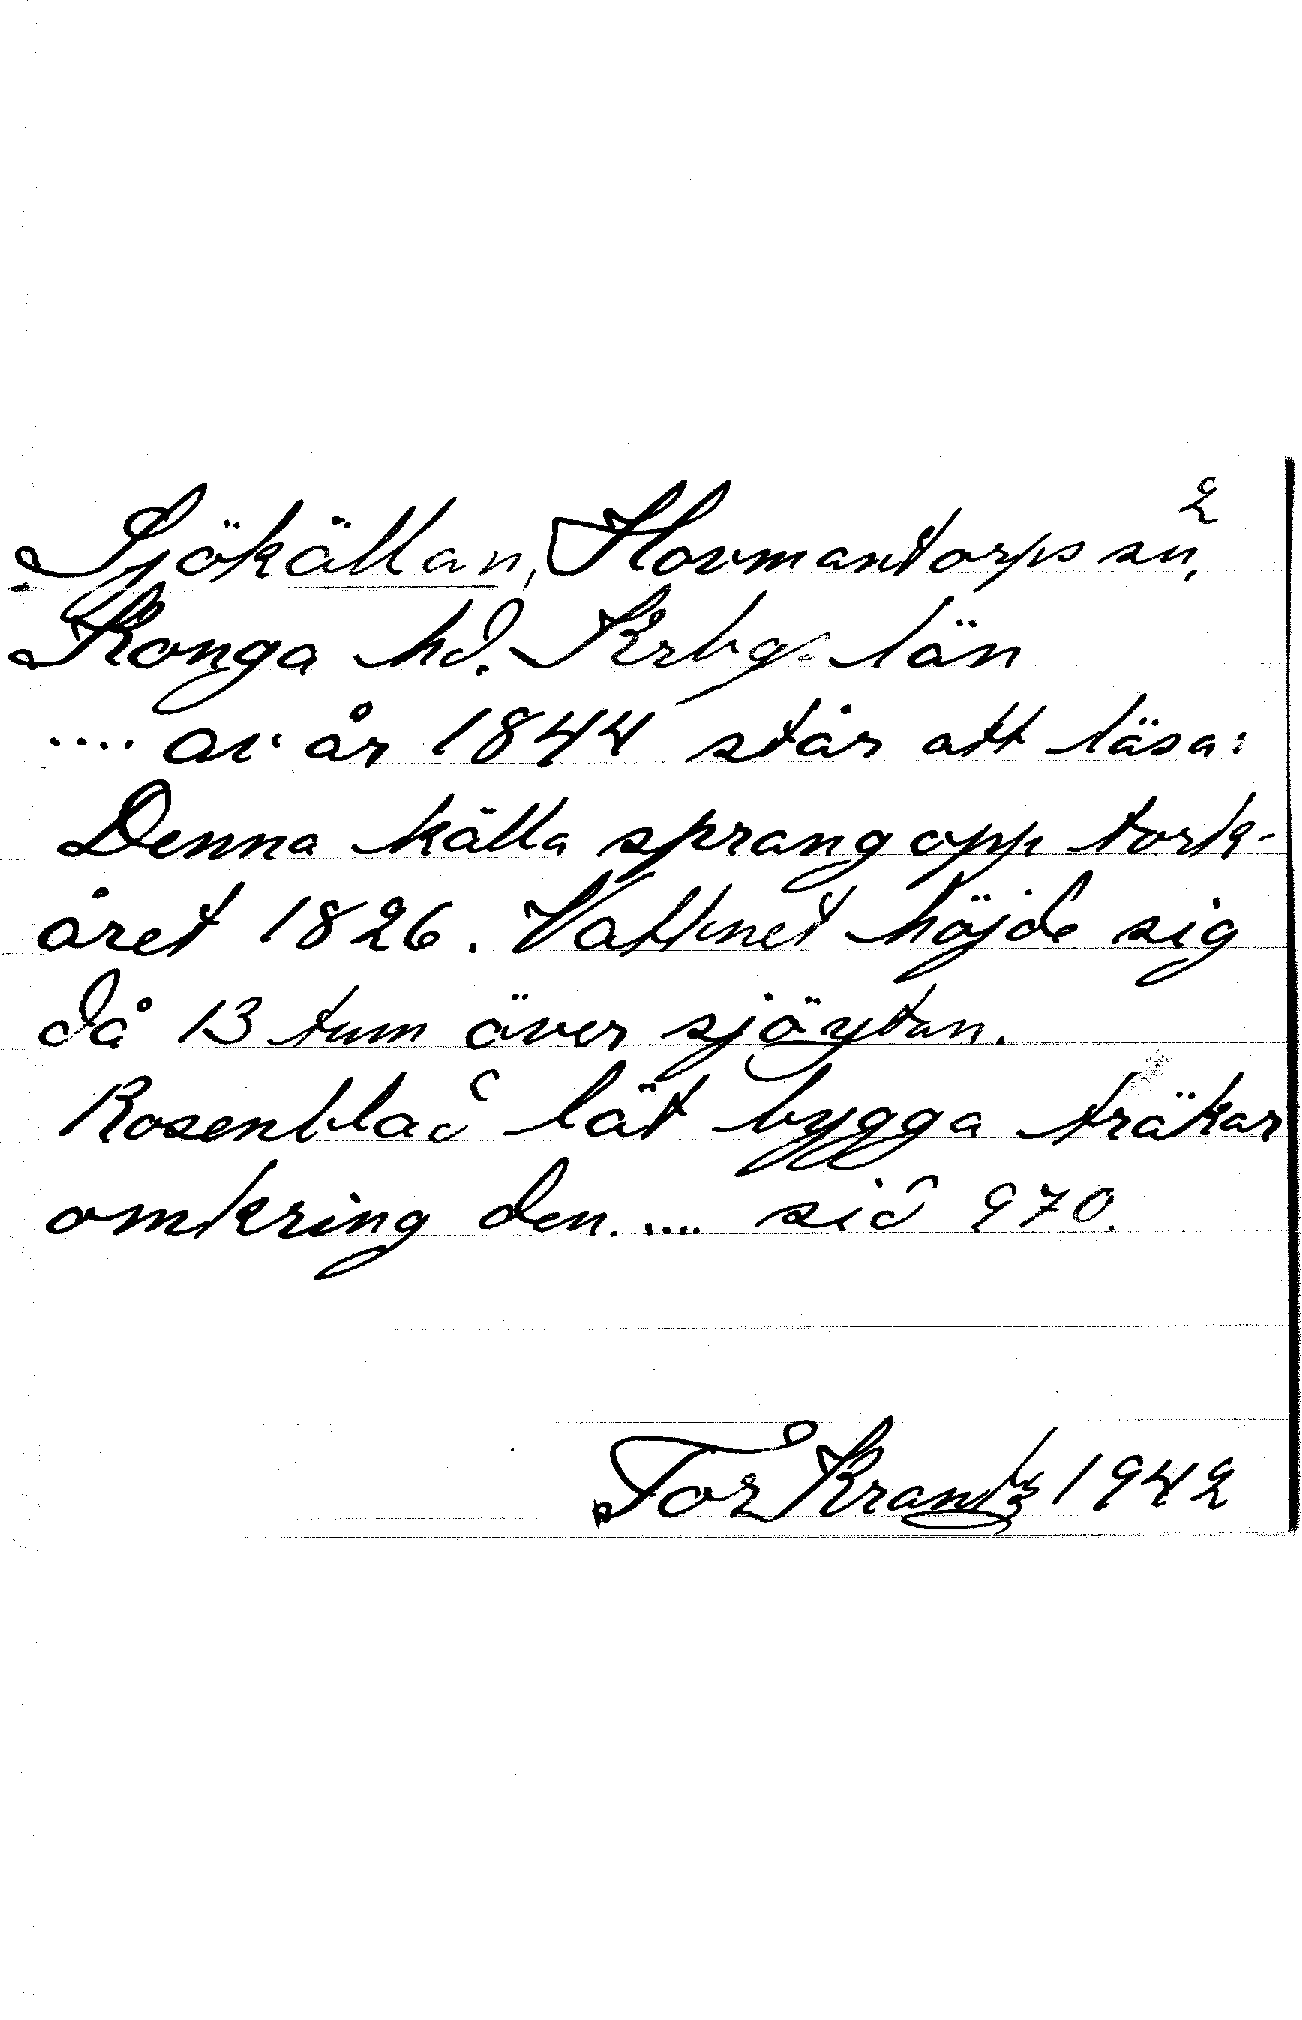 2
Sjökällan, Hovmantorps sn,
Konga hd. Krbgs län
.... av år 1844 står att läsa:
Denna källa sprang opp tork-
året 1826. Vattnet höjde sig
då 13 tum över sjöytan.
Rosenblad lät bygga träkar
omkring den. .... sid 970.
Tor Krantz 1942